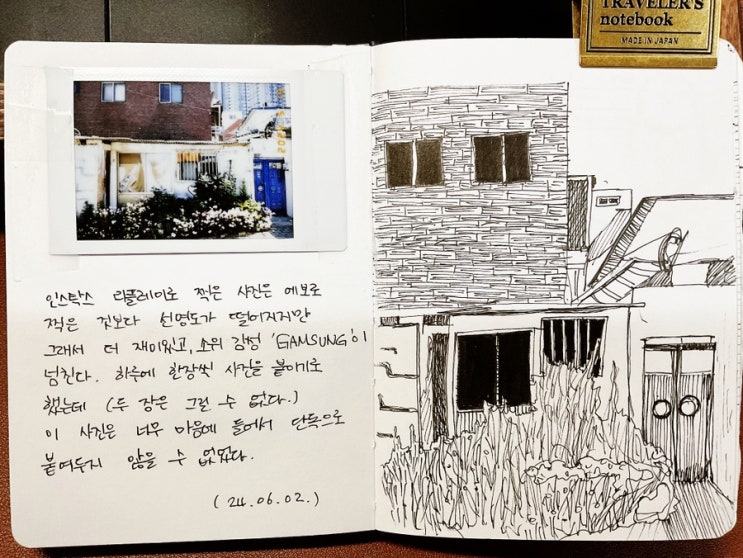 TRAVELER'S
notebook
MADE IN JAPAN
인스탁스 리플레이로 찍은 사진은 에보로
찍은 것보다 선명도가 떨어지지만
그래서 더 재미있고, 소위 감성 'GAMSUNG'이
넘친다. 하루에 한장씩 사진을 붙이기로
했는데 (두 장은 그럴 수 없다.)
이 사진은 너무 마음에 들어서 단독으로
붙여두지 않을 수 없었다.
(24.06.02.)